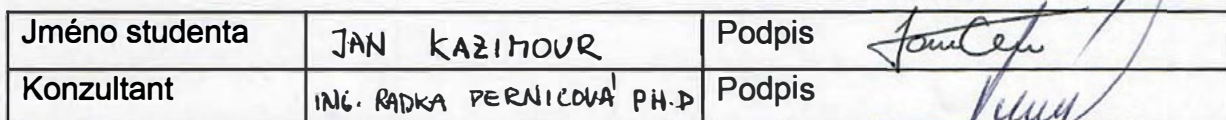 Jméno studenta JAN KAZIMOUR Podpis
Konzultant ING. RADKA PERNICOVÁ PH.D Podpis